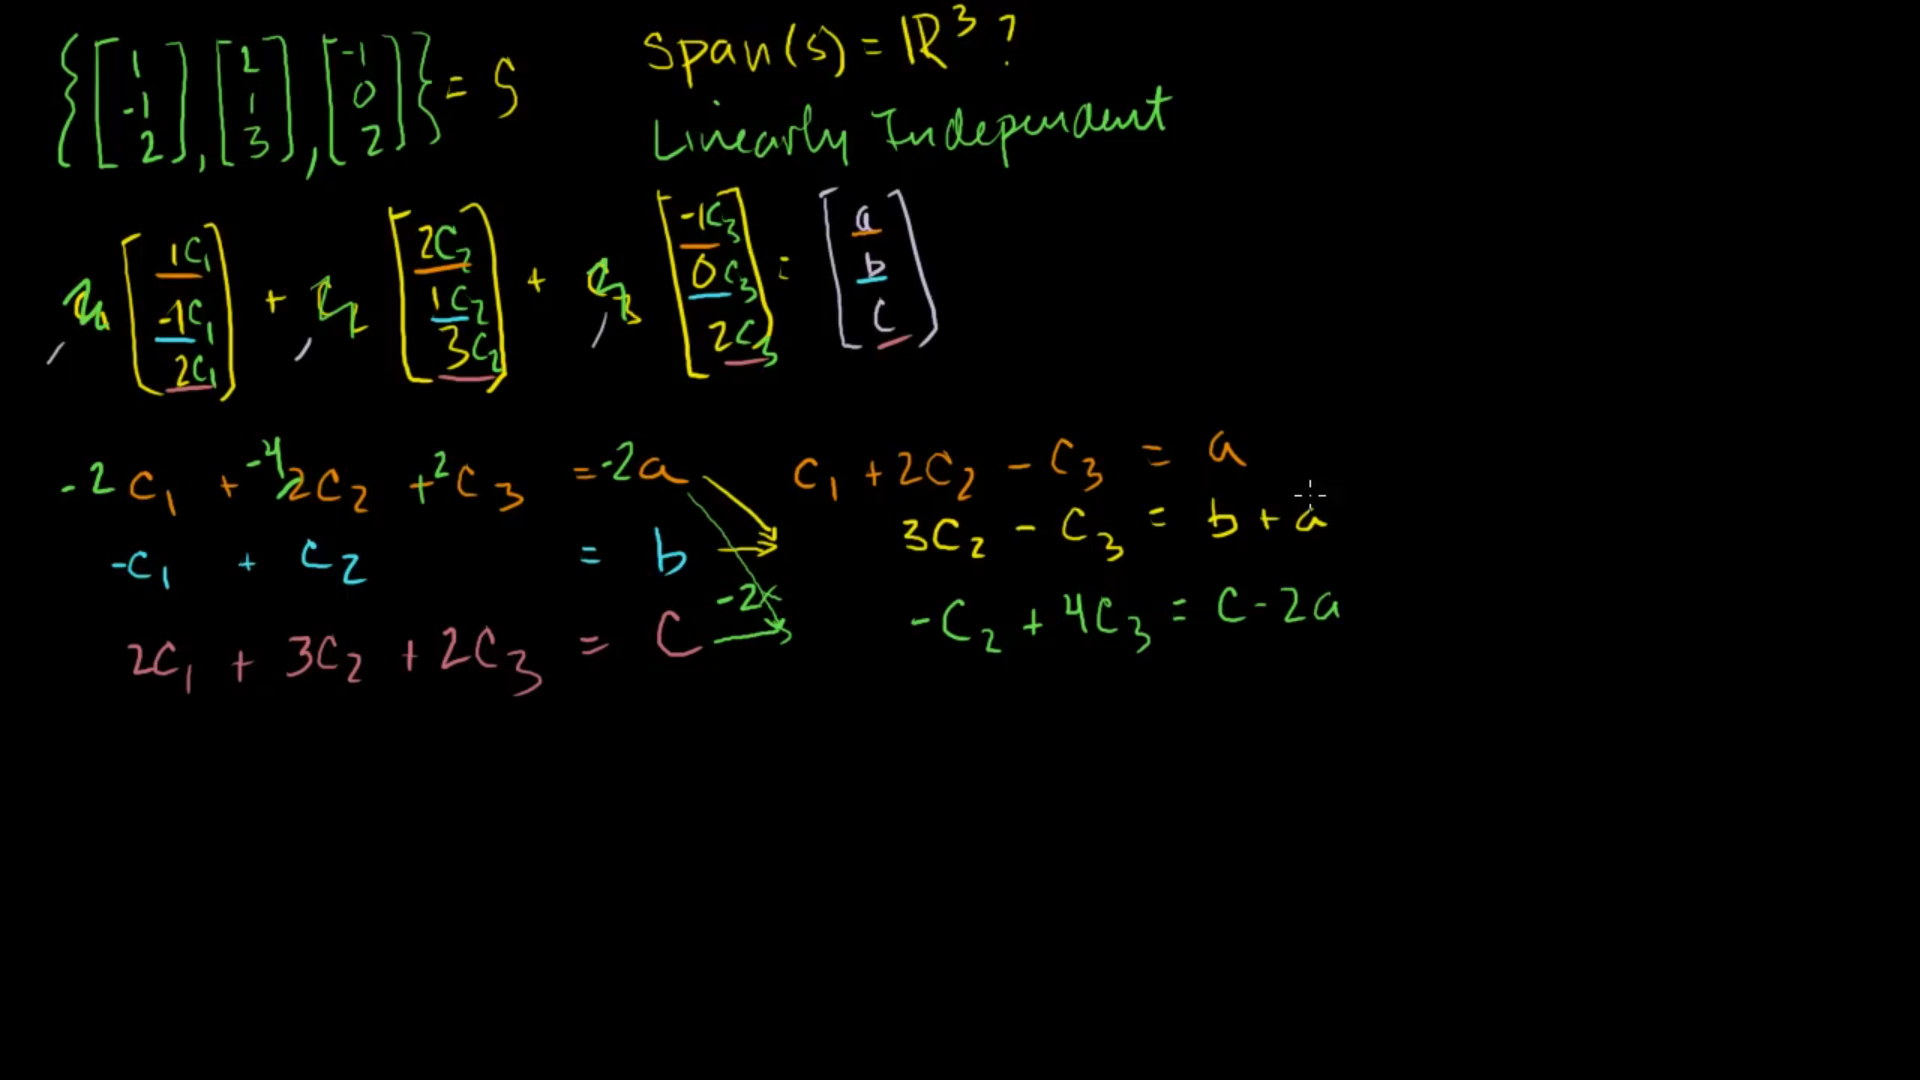 {[1 -1 2], [2 1 3], [-1 0 2]} = S
Span(S) = ℝ³ ?
Linearly Independent
[1c₁ -1c₁ 2c₁] + [2c₂ 1c₂ 3c₂] + [-1c₃ 0c₃ 2c₃] = [a b c]
-2c₁ + -4 2c₂ +2c₃ = -2a
-c₁ + c₂ = b
2c₁ + 3c₂ + 2c₃ = c
-2x
c₁ + 2c₂ - c₃ = a
3c₂ - c₃ = b + a
-c₂ + 4c₃ = c - 2a